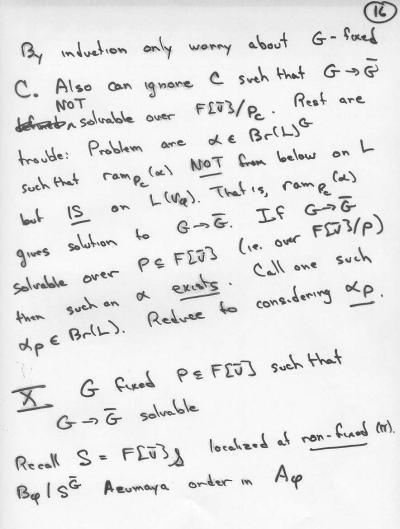 16
By induction only worry about G-fixed
C. Also can ignore C such that G → Ḡ
NOT
solvable over F[V̄]/P_C. Rest are
trouble: Problem are α ∈ Br(L)^G
such that ram_{P_C}(α) NOT from below on L
but IS on L(V_φ). That is, ram_{P_C}(α)
gives solution to G → Ḡ. If G → Ḡ
solvable over P ⊆ F[V̄] (ie. over F[V̄]/P)
then such an α exists. Call one such
α_P ∈ Br(L). Reduce to considering α_P.
X G fixed P ⊆ F[V̄] such that
G → Ḡ solvable
Recall S = F[V̄]_S localized at non-fixed (π).
B_φ / S^Ḡ Azumaya order in A_φ